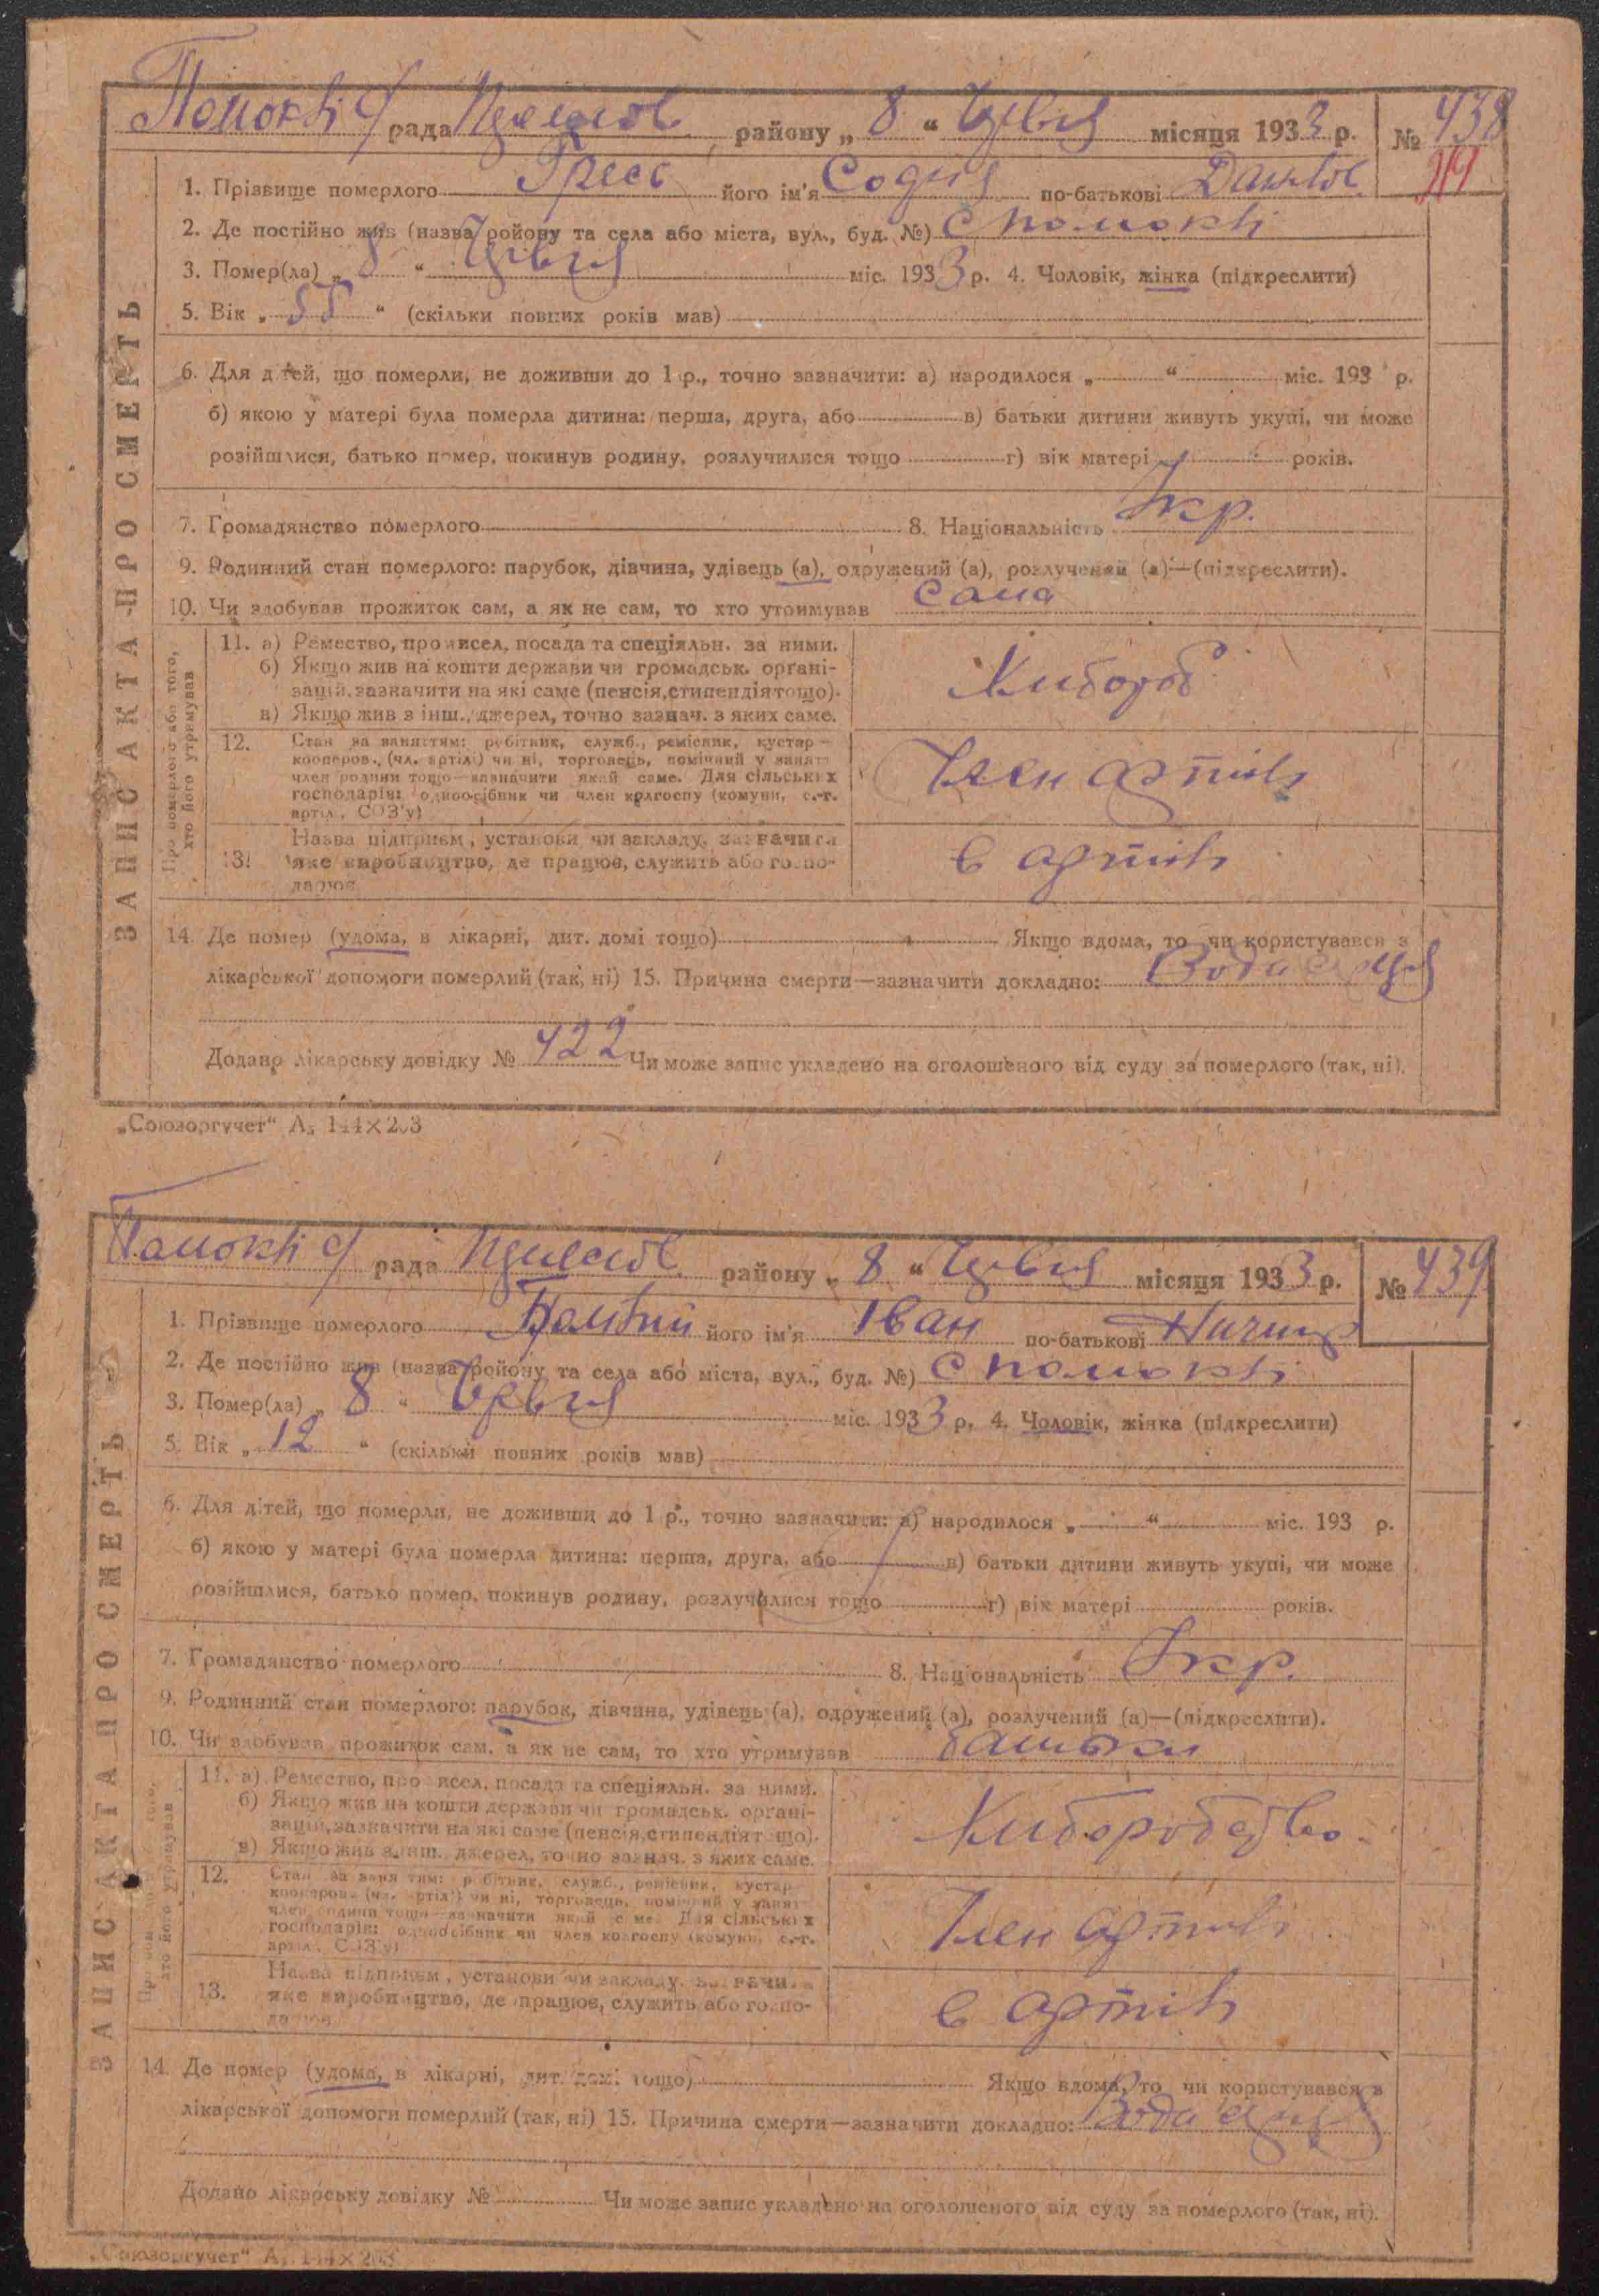 рада района „ 8 “ Црвня місяця 1933 р. № 438
1. Прізвище померлого Гресс його ім'я Софія по-батькові Данилов.
219
2. Де постійно жив (назва ройону та села або міста, вул., буд. №) с Помоклі
3. Помер(ла) „ 8 “ Црвня міс. 1933 р. 4. Чоловік, жінка (підкреслити)
5. Вік „ 55 “ (скільки повних років мав)
6. Для дітей, що померли, не доживши до 1 р., точно зазначити: а) народилося „ “ міс. 193 р.
б) якою у матері була померла дитина: перша, друга, або в) батьки дитини живуть укупі, чи може
розійшлися, батько помер, покинув родину, розлучилися тощо г) вік матері років.
7. Громадянство померлого 8. Національність Укр.
9. Родинний стан померлого: парубок, дівчина, удівець (а), одружений (а), розлучений (а)—(підкреслити).
10. Чи здобував прожиток сам, а як не сам, то хто утримував Сама
ЗАПИС АКТА ПРО СМЕРТЬ
Про померлого або того, хто його утримував
11. а) Ремество, промисел, посада та спеціяльн. за ними.
б) Якщо жив на кошти держави чи громадськ. орґані-
зацій, зазначити на які саме (пенсія, стипендія тощо).
в) Якщо жив з інш. джерел, точно зазнач. з яких саме.
Хлібороб
12. Стан за заняттям: робітник, служб., ремісник, кустар—
кооперов., (чл. артілі) чи ні, торговець, помічний у занят.
член родини тощо—зазначити який саме. Для сільських
господарів: одноосібник чи член колгоспу (комуни, с.-г.
артіл., СОЗ'у)
Член артілі
13. Назва підприєм., установи чи закладу, зазначити
яке виробництво, де працює, служить або госпо-
дарює
в артілі
14. Де помер (удома, в лікарні, дит. домі тощо) Якщо вдома, то чи користувався з
лікарської допомоги померлий (так, ні) 15. Причина смерти—зазначити докладно:
Додано лікарську довідку № 422 Чи може запис укладено на оголошеного від суду за померлого (так, ні).
„Союзоргучет“ А₅ 144×203
рада района „ 8 “ Црвня місяця 1933 р. № 439
1. Прізвище померлого його ім'я Іван по-батькові Ничип
2. Де постійно жив (назва ройону та села або міста, вул., буд. №) с Помоклі
3. Помер(ла) „ 8 “ Црвня міс. 1933 р. 4. Чоловік, жінка (підкреслити)
5. Вік „ 12 “ (скільки повних років мав)
6. Для дітей, що померли, не доживши до 1 р., точно зазначити: а) народилося „ “ міс. 193 р.
б) якою у матері була померла дитина: перша, друга, або в) батьки дитини живуть укупі, чи може
розійшлися, батько помер, покинув родину, розлучилися тощо г) вік матері років.
7. Громадянство померлого 8. Національність Укр.
9. Родинний стан померлого: парубок, дівчина, удівець (а), одружений (а), розлучений (а)—(підкреслити).
10. Чи здобував прожиток сам, а як не сам, то хто утримував батьки
ЗАПИС АКТА ПРО СМЕРТЬ
11. а) Ремество, промисел, посада та спеціяльн. за ними.
б) Якщо жив на кошти держави чи громадськ. орґані-
зацій, зазначити на які саме (пенсія, стипендія тощо).
в) Якщо жив з інш. джерел, точно зазнач. з яких саме.
Хлібороб
12. Стан за заняттям: робітник, служб., ремісник, кустар
кооперов. (чл. артілі) чи ні, торговець, помічний у занят.
член родини тощо—зазначити який саме. Для сільських
господарів: одноосібник чи член колгоспу (комуни, с.-г.
артіл., СОЗ'у)
Член артілі
13. Назва підприєм., установи чи закладу, зазначити
яке виробництво, де працює, служить або госпо-
дарює
в артілі
14. Де помер (удома, в лікарні, дит. домі тощо) Якщо вдома, то чи користувався з
лікарської допомоги померлий (так, ні) 15. Причина смерти—зазначити докладно:
Додано лікарську довідку № Чи може запис укладено на оголошеного від суду за померлого (так, ні).
„Союзоргучет“ А₅ 144×203